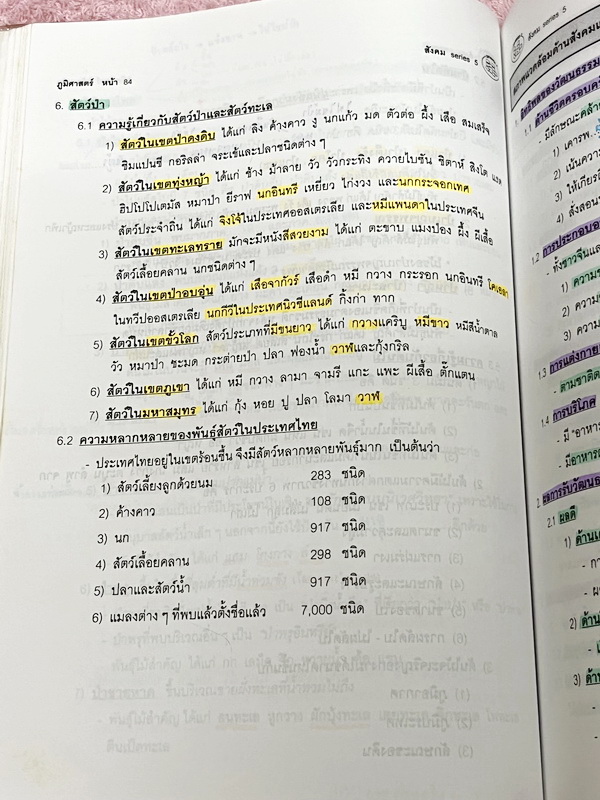 สังคม series 5
ภูมิศาสตร์ หน้า 84
6. สัตว์ป่า
6.1 ความรู้เกี่ยวกับสัตว์ป่าและสัตว์ทะเล
1) สัตว์ในเขตป่าดงดิบ ได้แก่ ลิง ค้างคาว งู นกแก้ว มด ตัวต่อ ผึ้ง เสือ สมเสร็จ
ชิมแปนซี กอริลล่า จระเข้และปลาชนิดต่าง ๆ
2) สัตว์ในเขตทุ่งหญ้า ได้แก่ ช้าง ม้าลาย วัว วัวกระทิง ควายไบซัน ชีตาห์ สิงโต แรด
ฮิปโปโปเตมัส หมาป่า ยีราฟ นกอินทรี เหยี่ยว ไก่งวง และนกกระจอกเทศ
สัตว์ประจำถิ่น ได้แก่ จิงโจ้ในประเทศออสเตรเลีย และหมีแพนดาในประเทศจีน
3) สัตว์ในเขตทะเลทราย มักจะมีหนังสีสวยงาม ได้แก่ ตะขาบ แมงป่อง ผึ้ง ผีเสื้อ
สัตว์เลื้อยคลาน นกชนิดต่าง ๆ
4) สัตว์ในเขตป่าอบอุ่น ได้แก่ เสือจากัวร์ เสือดำ หมี กวาง กระรอก นกอินทรี โคเอลา
ในทวีปออสเตรเลีย นกกีวีในประเทศนิวซีแลนด์ กิ้งก่า ทาก
5) สัตว์ในเขตขั้วโลก สัตว์ประเภทที่มีขนยาว ได้แก่ กวางแคริบู หมีขาว หมีสีน้ำตาล
วัว หมาป่า ชะมด กระต่ายป่า ปลา ฟองน้ำ วาฬและกุ้งกริล
6) สัตว์ในเขตภูเขา ได้แก่ หมี กวาง ลามา จามรี แกะ แพะ ผีเสื้อ ตั๊กแตน
7) สัตว์ในมหาสมุทร ได้แก่ กุ้ง หอย ปู ปลา โลมา วาฬ
6.2 ความหลากหลายของพันธุ์สัตว์ในประเทศไทย
- ประเทศไทยอยู่ในเขตร้อนชื้น จึงมีสัตว์หลากหลายพันธุ์มาก เป็นต้นว่า
1) สัตว์เลี้ยงลูกด้วยนม 283 ชนิด
2) ค้างคาว 108 ชนิด
3) นก 917 ชนิด
4) สัตว์เลื้อยคลาน 298 ชนิด
5) ปลาและสัตว์น้ำ 917 ชนิด
6) แมลงต่าง ๆ ที่พบแล้วตั้งชื่อแล้ว 7,000 ชนิด
สังคม series 5
1.1 ด้านชีวิตครอบครัว
- มีลักษณะคล้าย
1) เคารพ
2) เน้นความ
3) ให้เกียรติ
4) สั่งสอน
1.2 การประกอบอ
- ทั้งชาวจีนและ
1) ความ
2) ความ
3) ความ
1.3 การแต่งกาย
- ตามชาติ
1.4 การบริโภค
- มี "อาหาร
- มีอาหาร
2. ผลการรับวัฒนธร
2.1 ผลดี
1) ด้าน
2) ด้าน
3) ด้าน